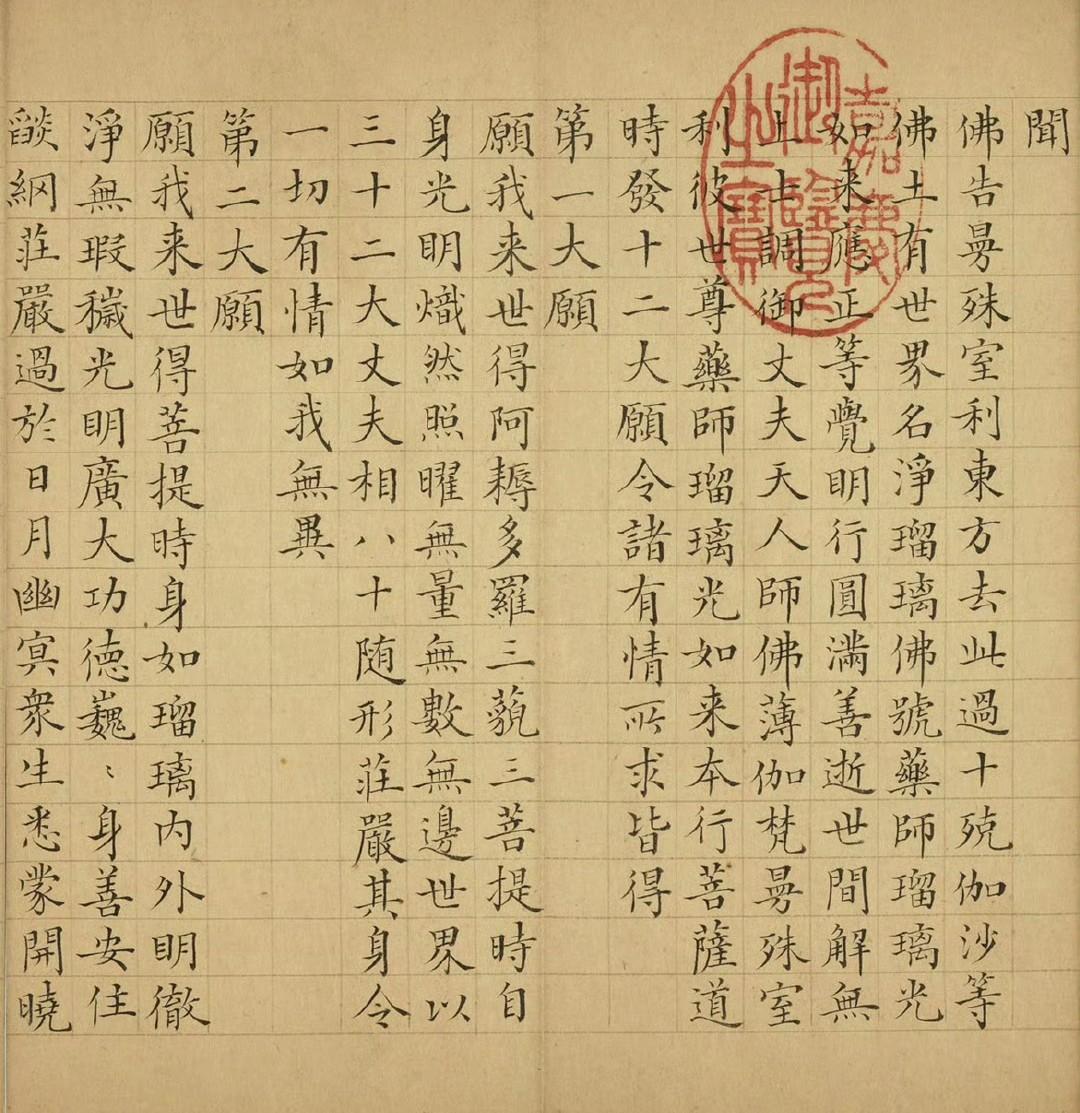 聞
佛告曼殊室利東方去此過十殑伽沙等
佛土有世界名淨瑠璃佛號藥師瑠璃光
如来應正等覺眀行圓滿善逝世間解無
上士調御丈夫天人師佛薄伽梵曼殊室
利彼世尊藥師瑠璃光如来本行菩薩道
時發十二大願令諸有情所求皆得
第一大願
願我来世得阿耨多羅三藐三菩提時自
身光眀熾然照曜無量無數無邊世界以
三十二大丈夫相八十随形莊嚴其身令
一切有情如我無異
第二大願
願我来世得菩提時身如瑠璃内外眀徹
淨無瑕穢光眀廣大功德巍〻身善安住
燄網莊嚴過於日月幽冥衆生悉蒙開曉
嘉慶御覽之寶